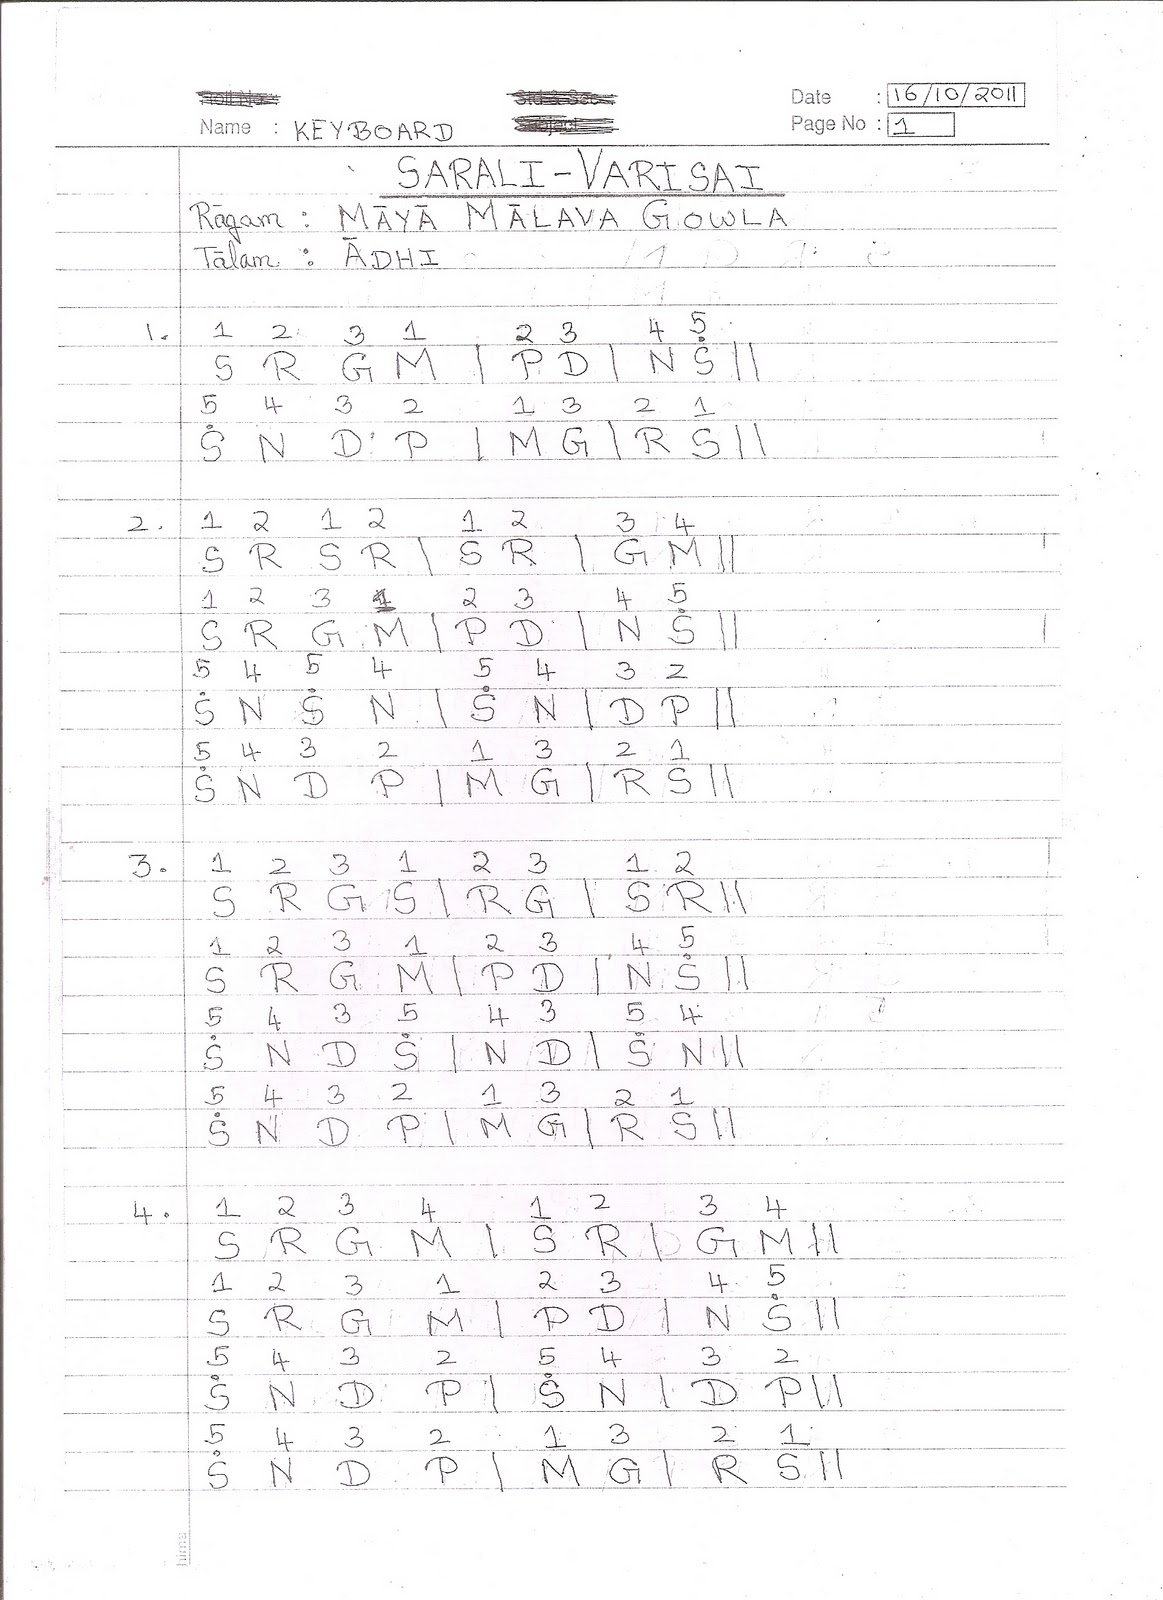 Date : 16/10/2011
Name : KEYBOARD Page No : 1
SARALI-VARISAI
Rāgam : MĀYĀ MĀLAVA GOWLA
Tālam : ĀDHI
1. 1 2 3 1 2 3 4 5
S R G M | P D | N Ṡ ||
5 4 3 2 1 3 2 1
Ṡ N D P | M G | R S ||
2. 1 2 1 2 1 2 3 4
S R S R | S R | G M ||
1 2 3 1 2 3 4 5
S R G M | P D | N Ṡ ||
5 4 5 4 5 4 3 2
Ṡ N Ṡ N | Ṡ N | D P ||
5 4 3 2 1 3 2 1
Ṡ N D P | M G | R S ||
3. 1 2 3 1 2 3 1 2
S R G S | R G | S R ||
1 2 3 1 2 3 4 5
S R G M | P D | N Ṡ ||
5 4 3 5 4 3 5 4
Ṡ N D Ṡ | N D | Ṡ N ||
5 4 3 2 1 3 2 1
Ṡ N D P | M G | R S ||
4. 1 2 3 4 1 2 3 4
S R G M | S R | G M ||
1 2 3 1 2 3 4 5
S R G M | P D | N Ṡ ||
5 4 3 2 5 4 3 2
Ṡ N D P | Ṡ N | D P ||
5 4 3 2 1 3 2 1
Ṡ N D P | M G | R S ||